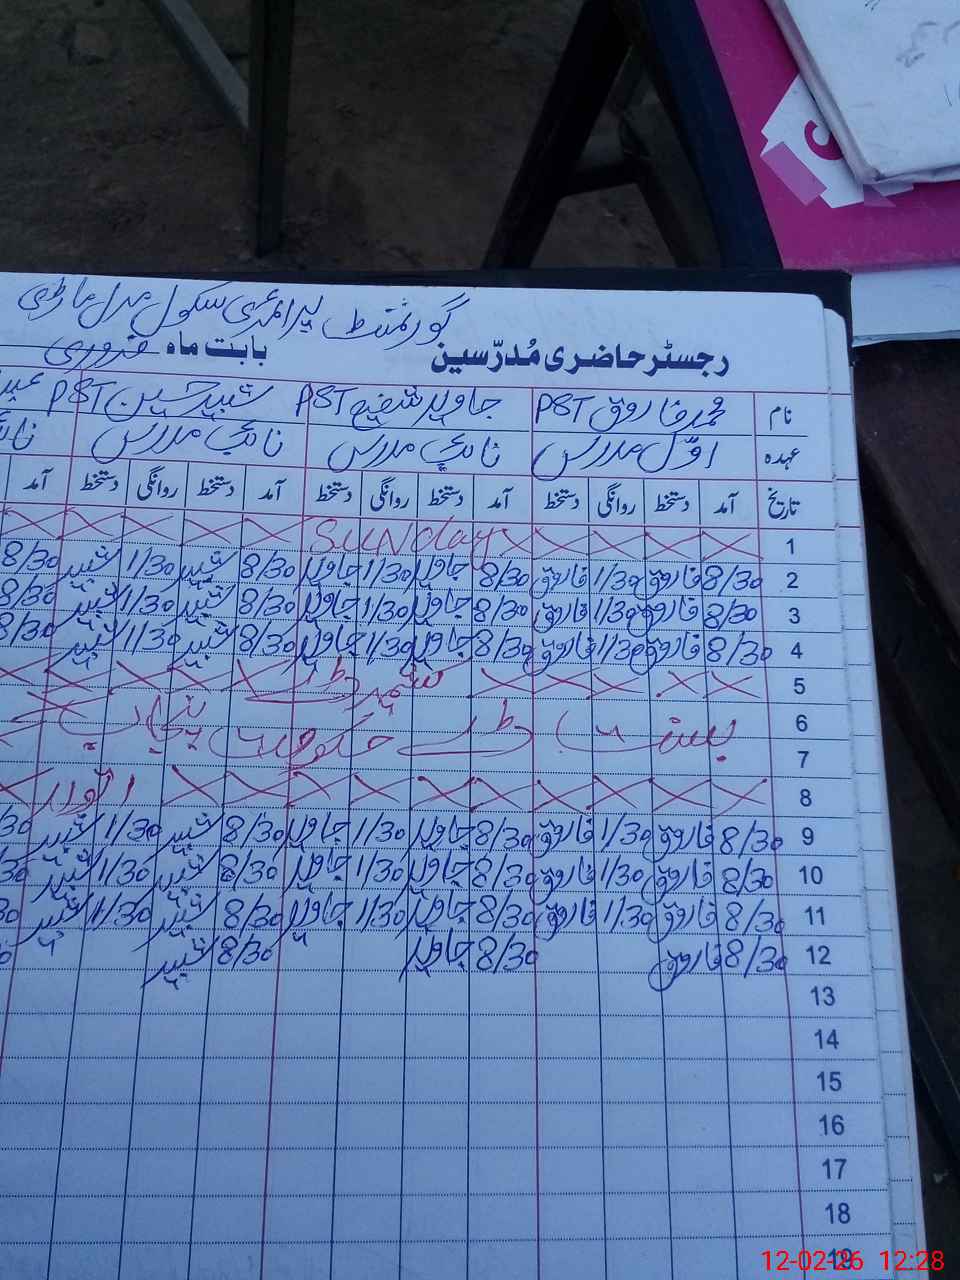 گورنمنٹ پرائمری سکول مدل ماڑی
رجسٹر حاضری مُدرّسین بابت ماہ فروری
نام محمد فاروق PST جاوید شفیع PST شبیر حسین PST
عہدہ اوّل مدرس نائب مدرس نائب مدرس
تاریخ آمد دستخط روانگی دستخط آمد دستخط روانگی دستخط آمد دستخط روانگی دستخط آمد
1 Sunday
2 8/30 فاروق 1/30 فاروق 8/30 جاوید 1/30 جاوید 8/30 شبیر 1/30 شبیر 8/30
3 8/30 فاروق 1/30 فاروق 8/30 جاوید 1/30 جاوید 8/30 شبیر 1/30 شبیر 8/30
4 8/30 فاروق 1/30 فاروق 8/30 جاوید 1/30 جاوید 8/30 شبیر 1/30 شبیر 8/30
5 کشمیر ڈے
6 بسنت ڈے حکومت پنجاب
7
8 اتوار
9 8/30 فاروق 1/30 فاروق 8/30 جاوید 1/30 جاوید 8/30 شبیر 1/30 شبیر 8/30
10 8/30 فاروق 1/30 فاروق 8/30 جاوید 1/30 جاوید 8/30 شبیر 1/30 شبیر 8/30
11 8/30 فاروق 1/30 فاروق 8/30 جاوید 1/30 جاوید 8/30 شبیر 1/30 شبیر
12 8/30 فاروق 8/30 جاوید 8/30 شبیر
13
14
15
16
17
18
19
12-02-26 12:28